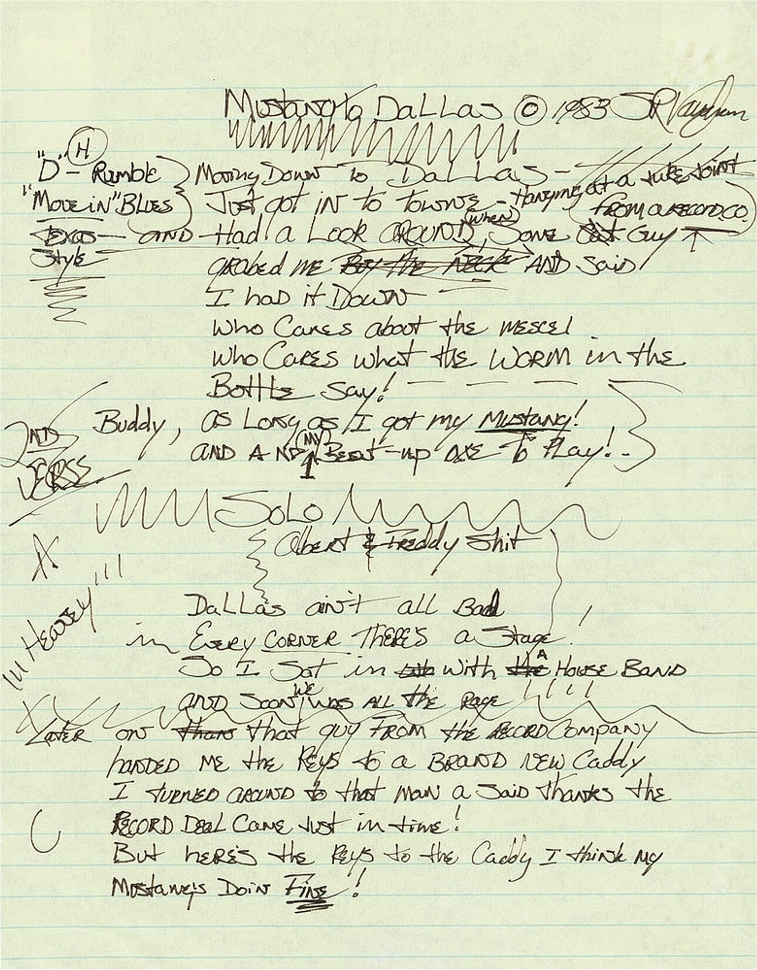 Mustang to Dallas © 1983 SRVaughan
H
"D" - Rumble
"Move in" BLUES
Texas - AND
Style -
Moving Down to DaLLas -
Just got in to towne - Hanging at a Juke Joint
FROM a RECORD CO.
Had a Look AROUND, (WHEN) Some Guy
grabed me By the NECK AND said
I had it Down
Who Cares about the mescel
Who Cares what the WORM in the
Bottle say!
2ND VERSS
Buddy, as Long as I got my Mustang!
AND A (MY) Beat-up axe to Play!
SOLO
Albert & Freddy Shit
DaLLas ain't all Bad
in Every CORNER THERE'S a Stage!
So I Sat in With the A HOUSE BAND
AND SOON WE WAS ALL the Rage !!!!
IN Heavey!!!
LATER on that guy FROM the RECORD COMPANY
handed ME the Keys to a BRAND NEW Caddy
I TURNED AROUND to that man a said thanks the
RECORD DEAL Came Just in time!
But here's the Keys to the Caddy I think my
Mustang's Doin FINE!